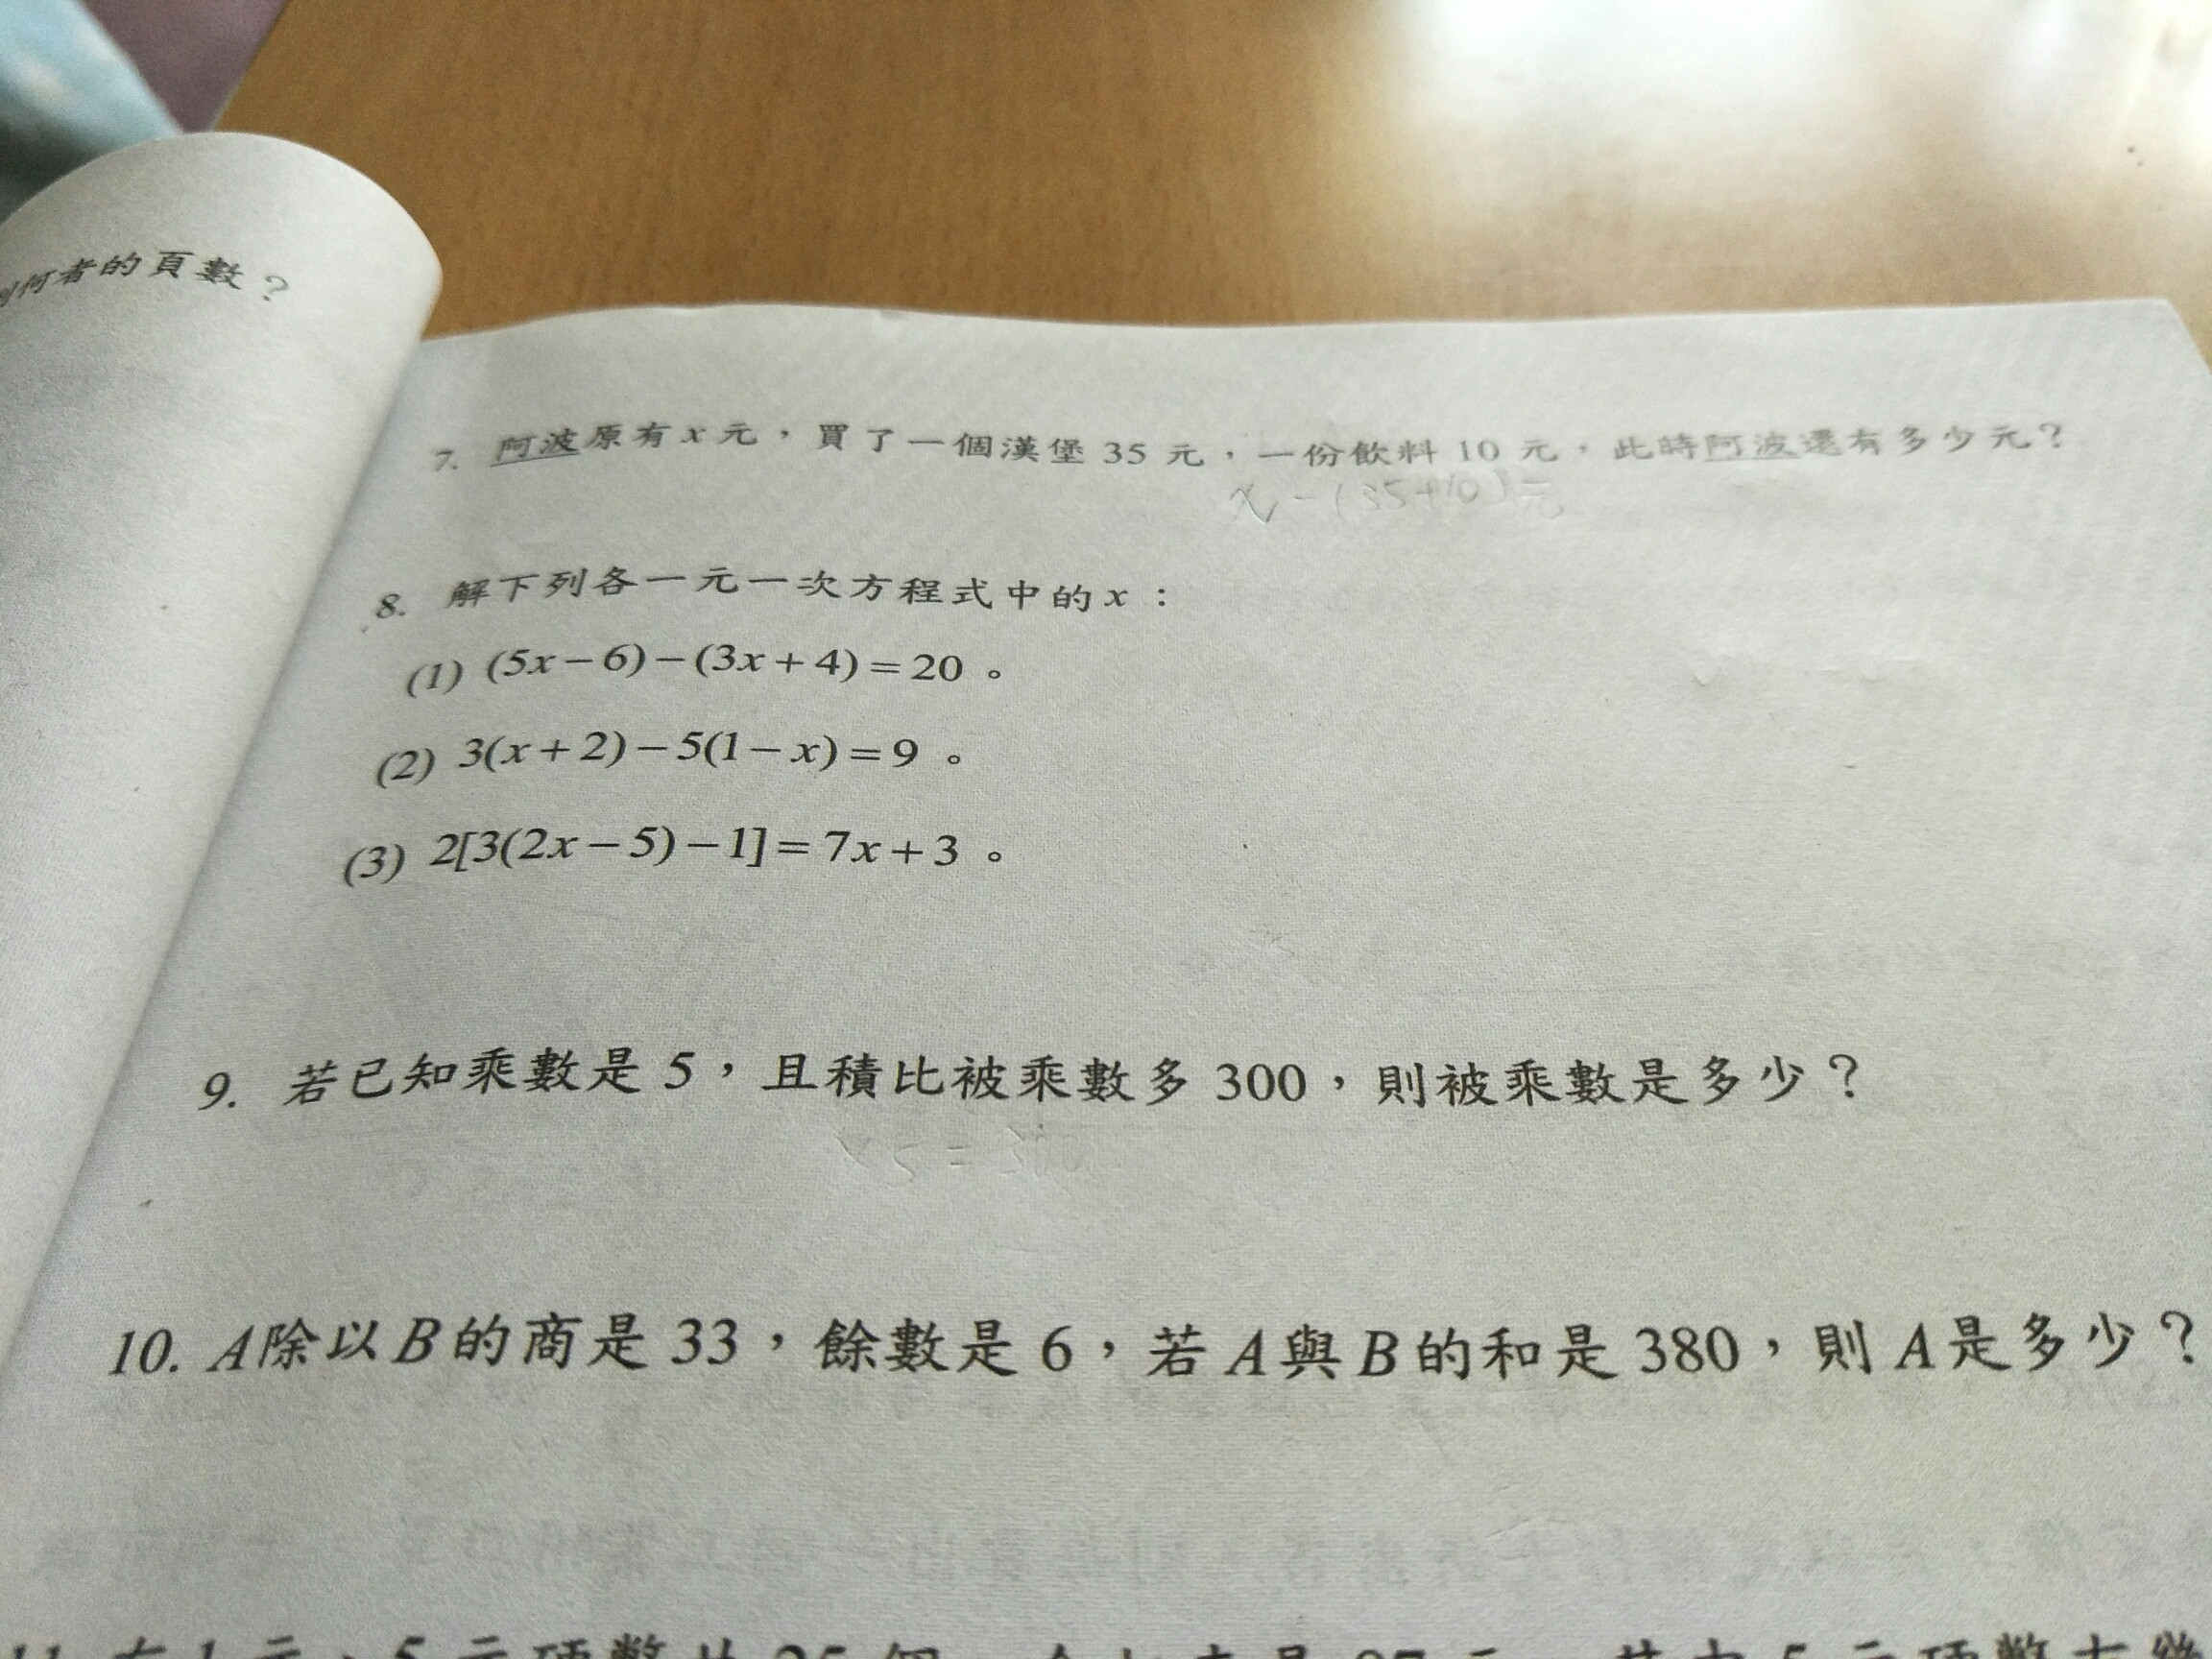 何者的頁數？
7. 阿波原有x元，買了一個漢堡 35 元，一份飲料 10 元，此時阿波還有多少元？
x-(35+10)元
8. 解下列各一元一次方程式中的x：
(1) (5x－6)－(3x＋4)＝20。
(2) 3(x＋2)－5(1－x)＝9。
(3) 2[3(2x－5)－1]＝7x＋3。
9. 若已知乘數是 5，且積比被乘數多 300，則被乘數是多少？
10. A除以B的商是 33，餘數是 6，若 A與B的和是 380，則 A是多少？